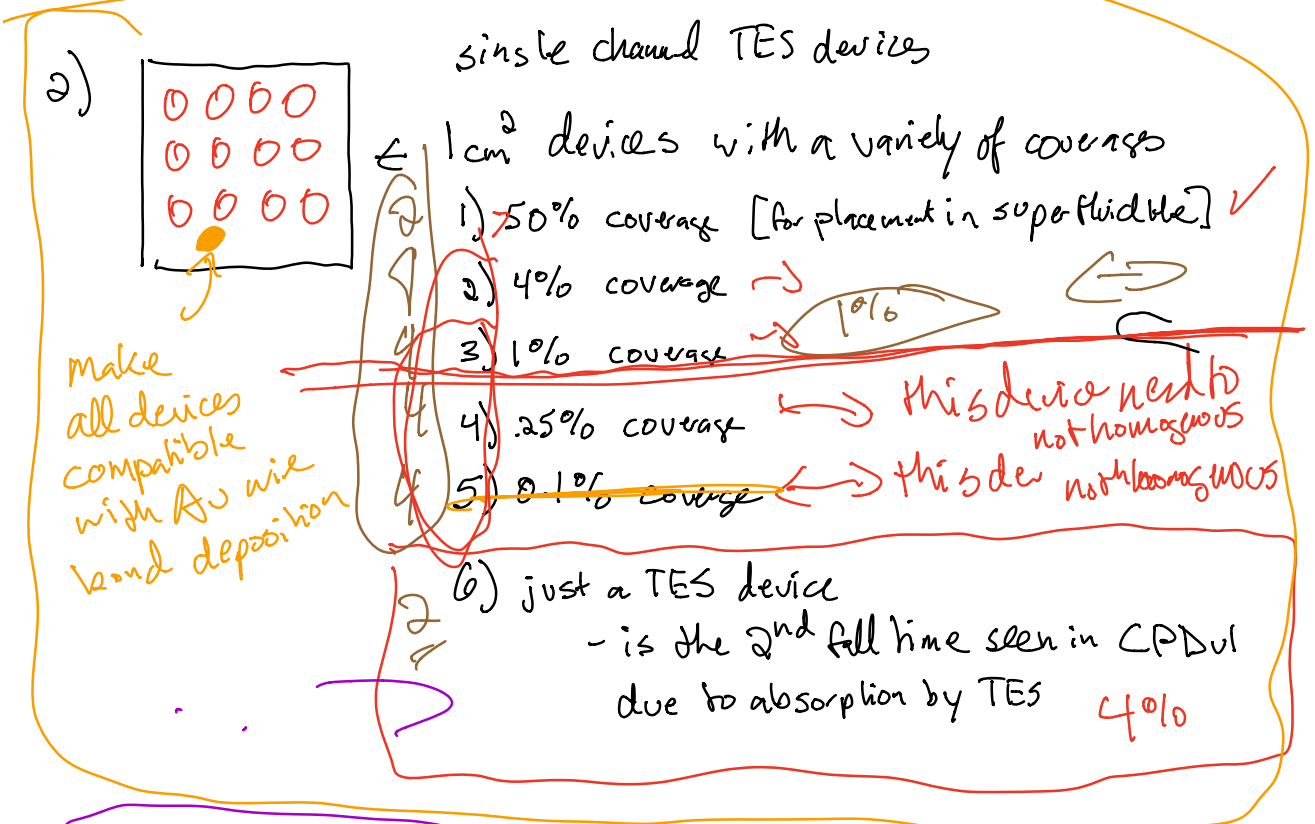 single channel TES devices
2)
1cm² devices with a variety of coverages
2 1) >50% coverage [for placement in superfluid He] ✓
2) 4% coverage
1%
3) 1% coverage
4 4) .25% coverage
this device need to
not homogenous
4 5) 0.1% coverage
this de
not homogenous
make
all devices
compatible
with Au wire
bond deposition
2 6) just a TES device
- is the 2nd fall time seen in CPDv1
due to absorption by TES
4%